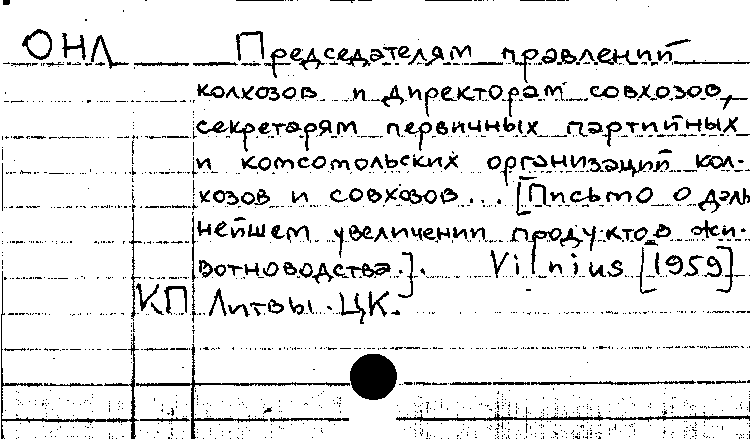 ОНЛ Председателям правлений
колхозов и директорам совхозов,
секретарям первичных партийных
и комсомольских организаций кол-
хозов и совхозов... [Письмо о даль
нейшем увеличении продуктов жи-
вотноводства.]. Vilnius [1959]
КП Литвы. ЦК.